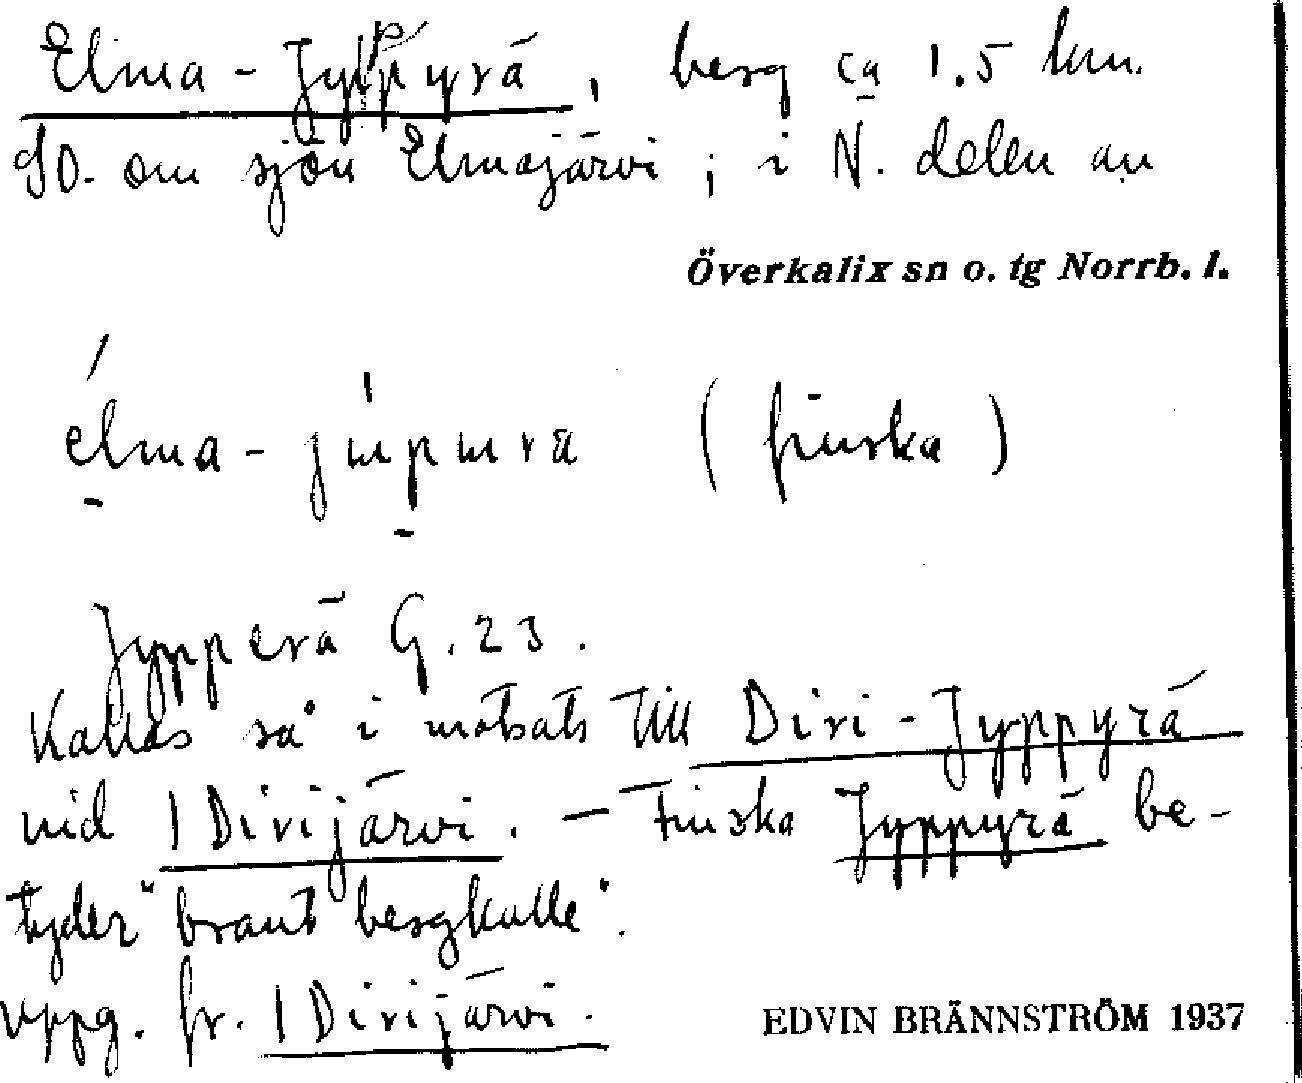 Elma-Jyppyrä, berg ca 1.5 km.
SO. om sjön Elmajärvi; i N. delen av
Överkalix sn o. tg Norrb. l.
(finska)
Jypperä G. 23.
Kallas så i motsats till Divi-Jyppyrä
vid 1 Divijärvi. — Finska Jyppyrä be-
tyder "brant bergkulle".
uppg. fr. 1 Divijärvi.
EDVIN BRÄNNSTRÖM 1937